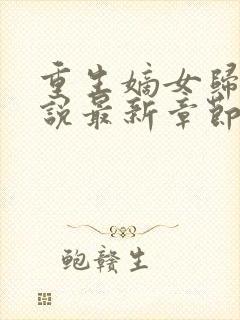 重生嫡女歸
說最新章節
鲍赣生